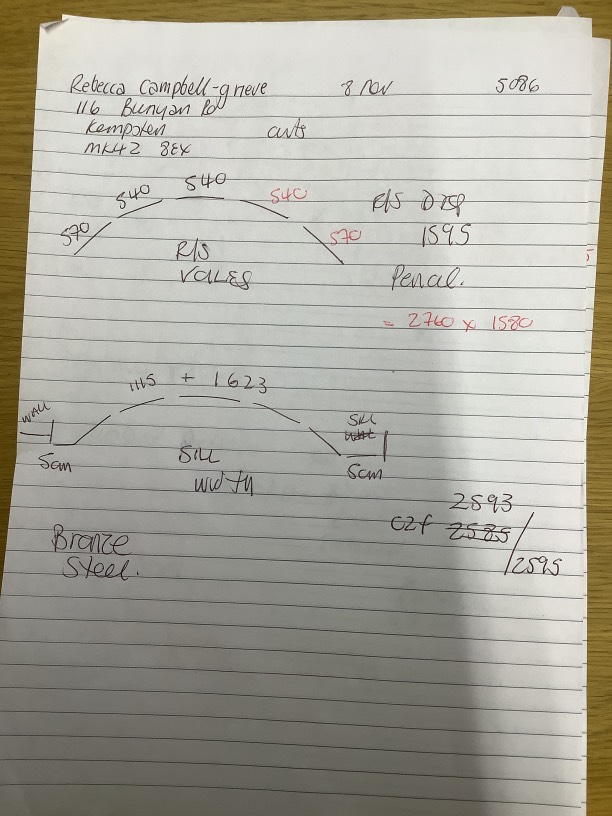 Rebecca Campbell-grieve 8 Nov 5086
116 Bunyan Rd
Kempsten
MK42 8EX
540 540 540
570 570
R/S
VALLES
R/S Drop
1595
Penal.
= 2760 x 1580
1115 + 1623
WALL
5cm
SILL
width
SILL
5cm
2593
c2f 2585
/2595
Bronze
Steel.